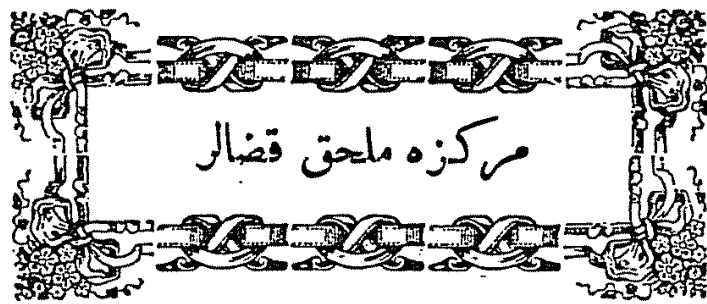 مركزه ملحق قضالر